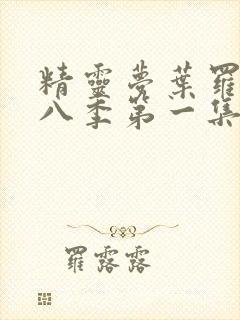 精靈夢葉羅
八季第一集
羅露露